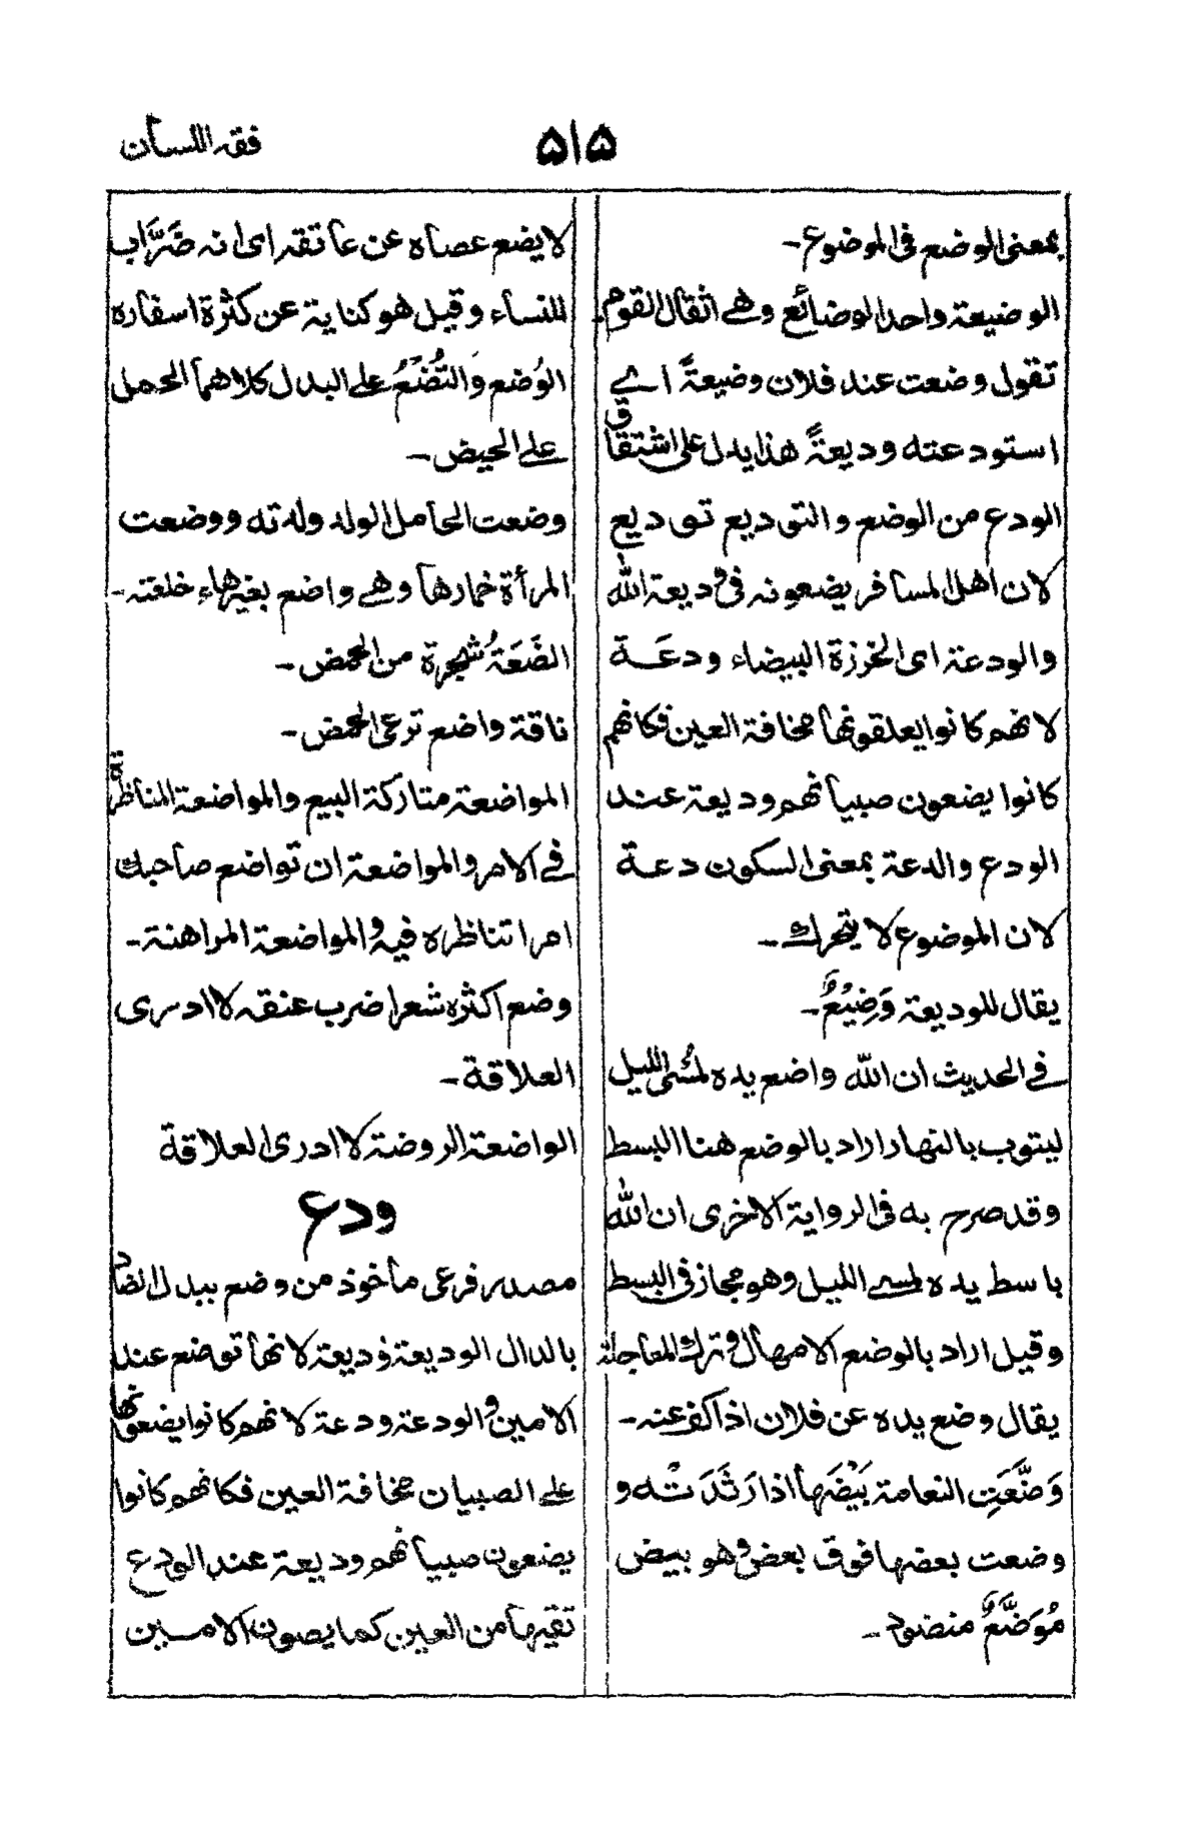 فقه اللسان
۵۱۵
بمعنى الوضع فى الموضوع ـ
الوضيعة واحد الوضائع وهے اثقال القوم
تقول وضعت عند فلان وضيعةً اے
استودعته وديعةً هذا يدل على اشتقاق
الودع من الوضع والتوديع توديع
لان اهل المسافر يضعونه فى وديعة الله
والودعة اى الخرزة البيضاء ودعَـة
لانهم كانوا يعلقونها مخافة العين فكانهم
كانوا يضعون صبيانهم وديعة عند
الودع والدعة بمعنى السكون دعـة
لان الموضوع لا يتحرك ـ
يقال للوديعة وَضِيْعٌ ـ
فے الحديث ان الله واضع يده لمُسئ الليل
ليتوب بالنهار اراد بالوضع هنا البسط
وقد صرح به فى الرواية الاخرى ان الله
باسط يده لمسے الليل وهو مجاز فى البسط
وقيل اراد بالوضع الامهال و ترك المعاجلة
يقال وضع يده عن فلان اذا كف عنه ـ
وَضَّعَتِ النعامة بَيْضَها اذا رَثَدَتْه و
وضعت بعضها فوق بعض وهو بيض
مُوَضَّعٌ منضود ـ
لا يضع عصاه عن عاتقه اى انه ضَرَّاب
للنساء وقيل هو كناية عن كثرة اسفاره
الوُضع وَالتُّضُعُ على البدل كلاهما الحمل
علے الحيض ـ
وضعت الحامل الولد ولدته ووضعت
المرأة خمارها وهے واضع بغيرهاء خلعته ـ
الضَعَةُ شجرة من الحمض ـ
ناقة واضع ترعى الحمض ـ
المواضعة متاركة البيع والمواضعة المناظرة
فے الامر والمواضعة ان تواضع صاحبك
امرا تناظره فيه والمواضعة المراهنة ـ
وضع اكثره شعرا ضرب عنقه لا ادرى
العلاقة ـ
الواضعة الروضة لا ادرى العلاقة
ودع
مصدر فرعى ماخوذ من وضع ببدل الضاد
بالدال الوديعة وديعة لانها توضع عند
الامين والودعة ودعة لانهم كانوا يضعونها
علے الصبيان مخافة العين فكانهم كانوا
يضعون صبيانهم وديعة عند الودع
تقيها من العين كما يصون الامـين